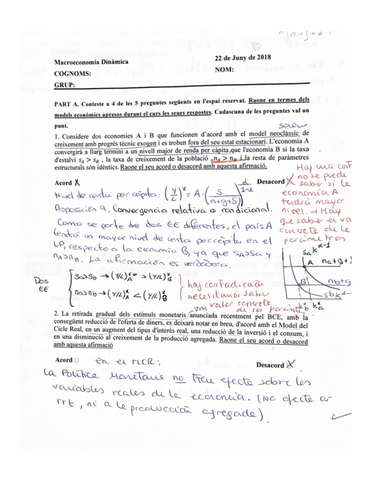 Macroeconomia Dinàmica
22 de Juny de 2018
COGNOMS:
NOM:
GRUP:
PART A. Conteste a 4 de les 5 preguntes següents en l'espai reservat. Raone en termes dels
models econòmics apresos durant el curs les seues respostes. Cadascuna de les preguntes val un
punt.
1. Considere dos economies A i B que funcionen d'acord amb el model neoclàssic de
creixement amb progrés tècnic exogen i es troben fora del seu estat estacionari. L'economia A
convergirà a llarg termini a un nivell major de renta per càpita que l'economia B si la taxa
d'estalvi s_A > s_B, la taxa de creixement de la població n_A > n_B i la resta de paràmetres
estructurals són idèntics. Raone el seu acord o desacord amb aquesta afirmació.
Acord X
Desacord X
Nivel de renta per càpita: (Y/L)* = A · (S / n+g+δ)
Proposición 9, Convergencia relativa o condicional.
Como se parte de dos EE diferentes, el país A
tendrá un mayor nivel de renta per cápita en el
LP, respecto a la economía B, ya que SA>SB y
nA>nB. La afirmación es verdadera.
Hay una cont
no se puede
saber si la
economia A
tendrá mayor
nivel → Hay
que saber el va
concreto de
parámetros
Dos
EE
SA>SB → (Y/L)*A > (Y/L)*B
nA>nB → (Y/L)*A < (Y/L)*B
hay contradicción
necesitamos saber
valor concreto
de los parámet
2. La retirada gradual dels estímuls monetaris anunciada recentment pel BCE, amb la
conseguient reducció de l'oferta de diners, es deixarà notar en breu, d'acord amb el Model del
Cicle Real, en un augment del tipus d'interés real, una reducció de la inversió i el consum, i
en una disminució al creixement de la producció agregada. Raone el seu acord o desacord
amb aquesta afirmació
Acord
Desacord X
en el MCR:
La Política Monetaria no tiene efecto sobre las
variables reales de la economía. (No afecta al
ni a la producción agregada).